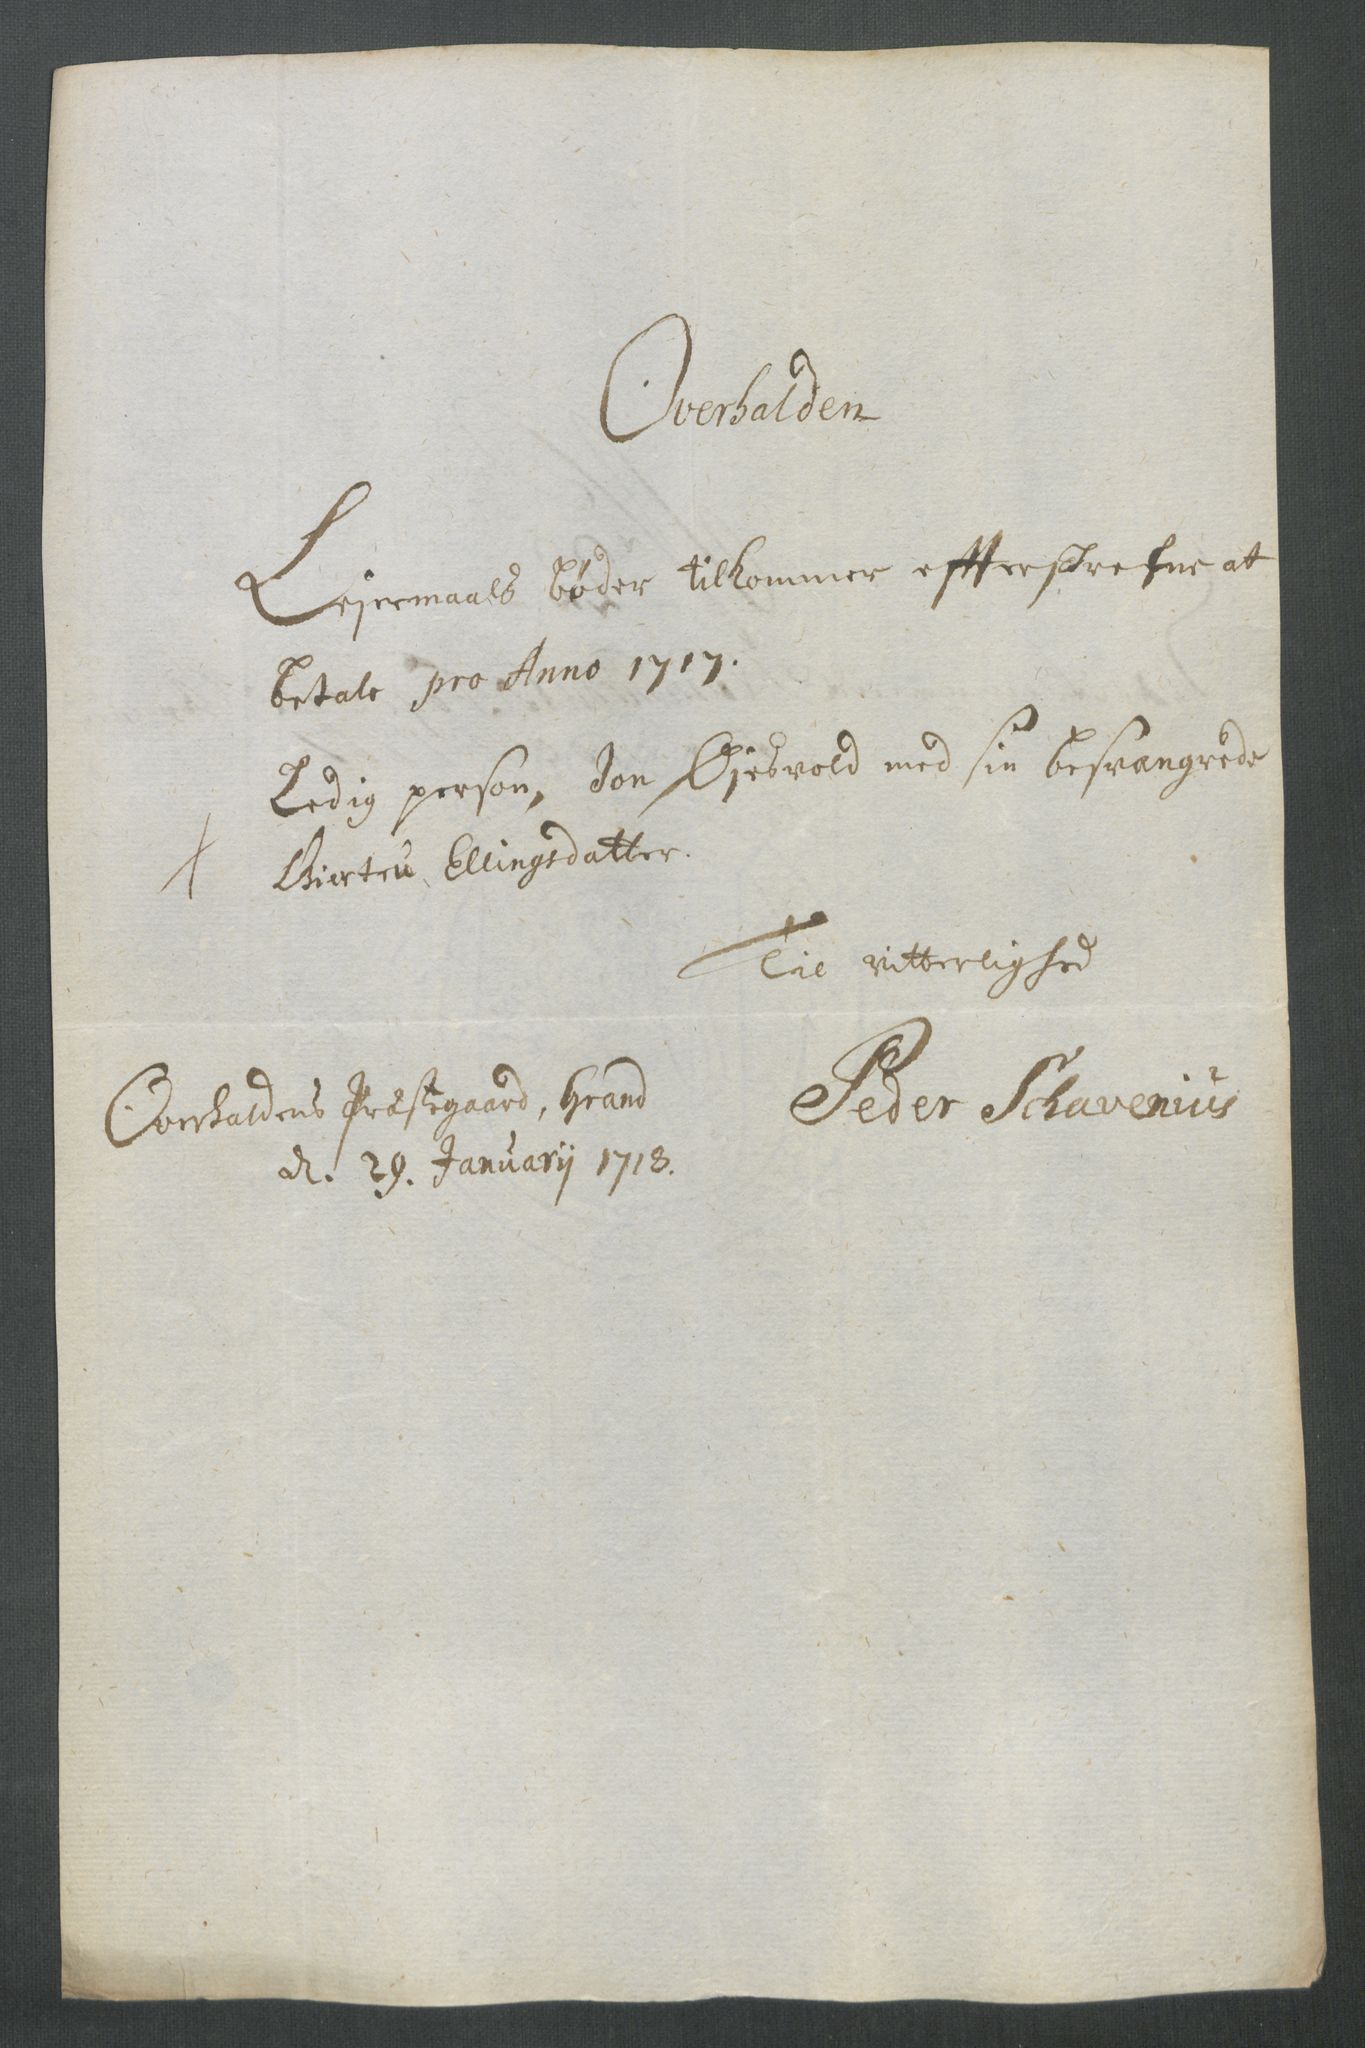 Overhalden
Lejermaals bøder tilkommer effterskrefne at
betale pro Anno 1717.
Ledig person, Jon Øjesvold med sin besvangrede
+ Ellingsdatter.
Til vitterlighed
Overhaldens Præstegaard, Hrand
d. 29. Januarij 1718.
Peder Schavenius